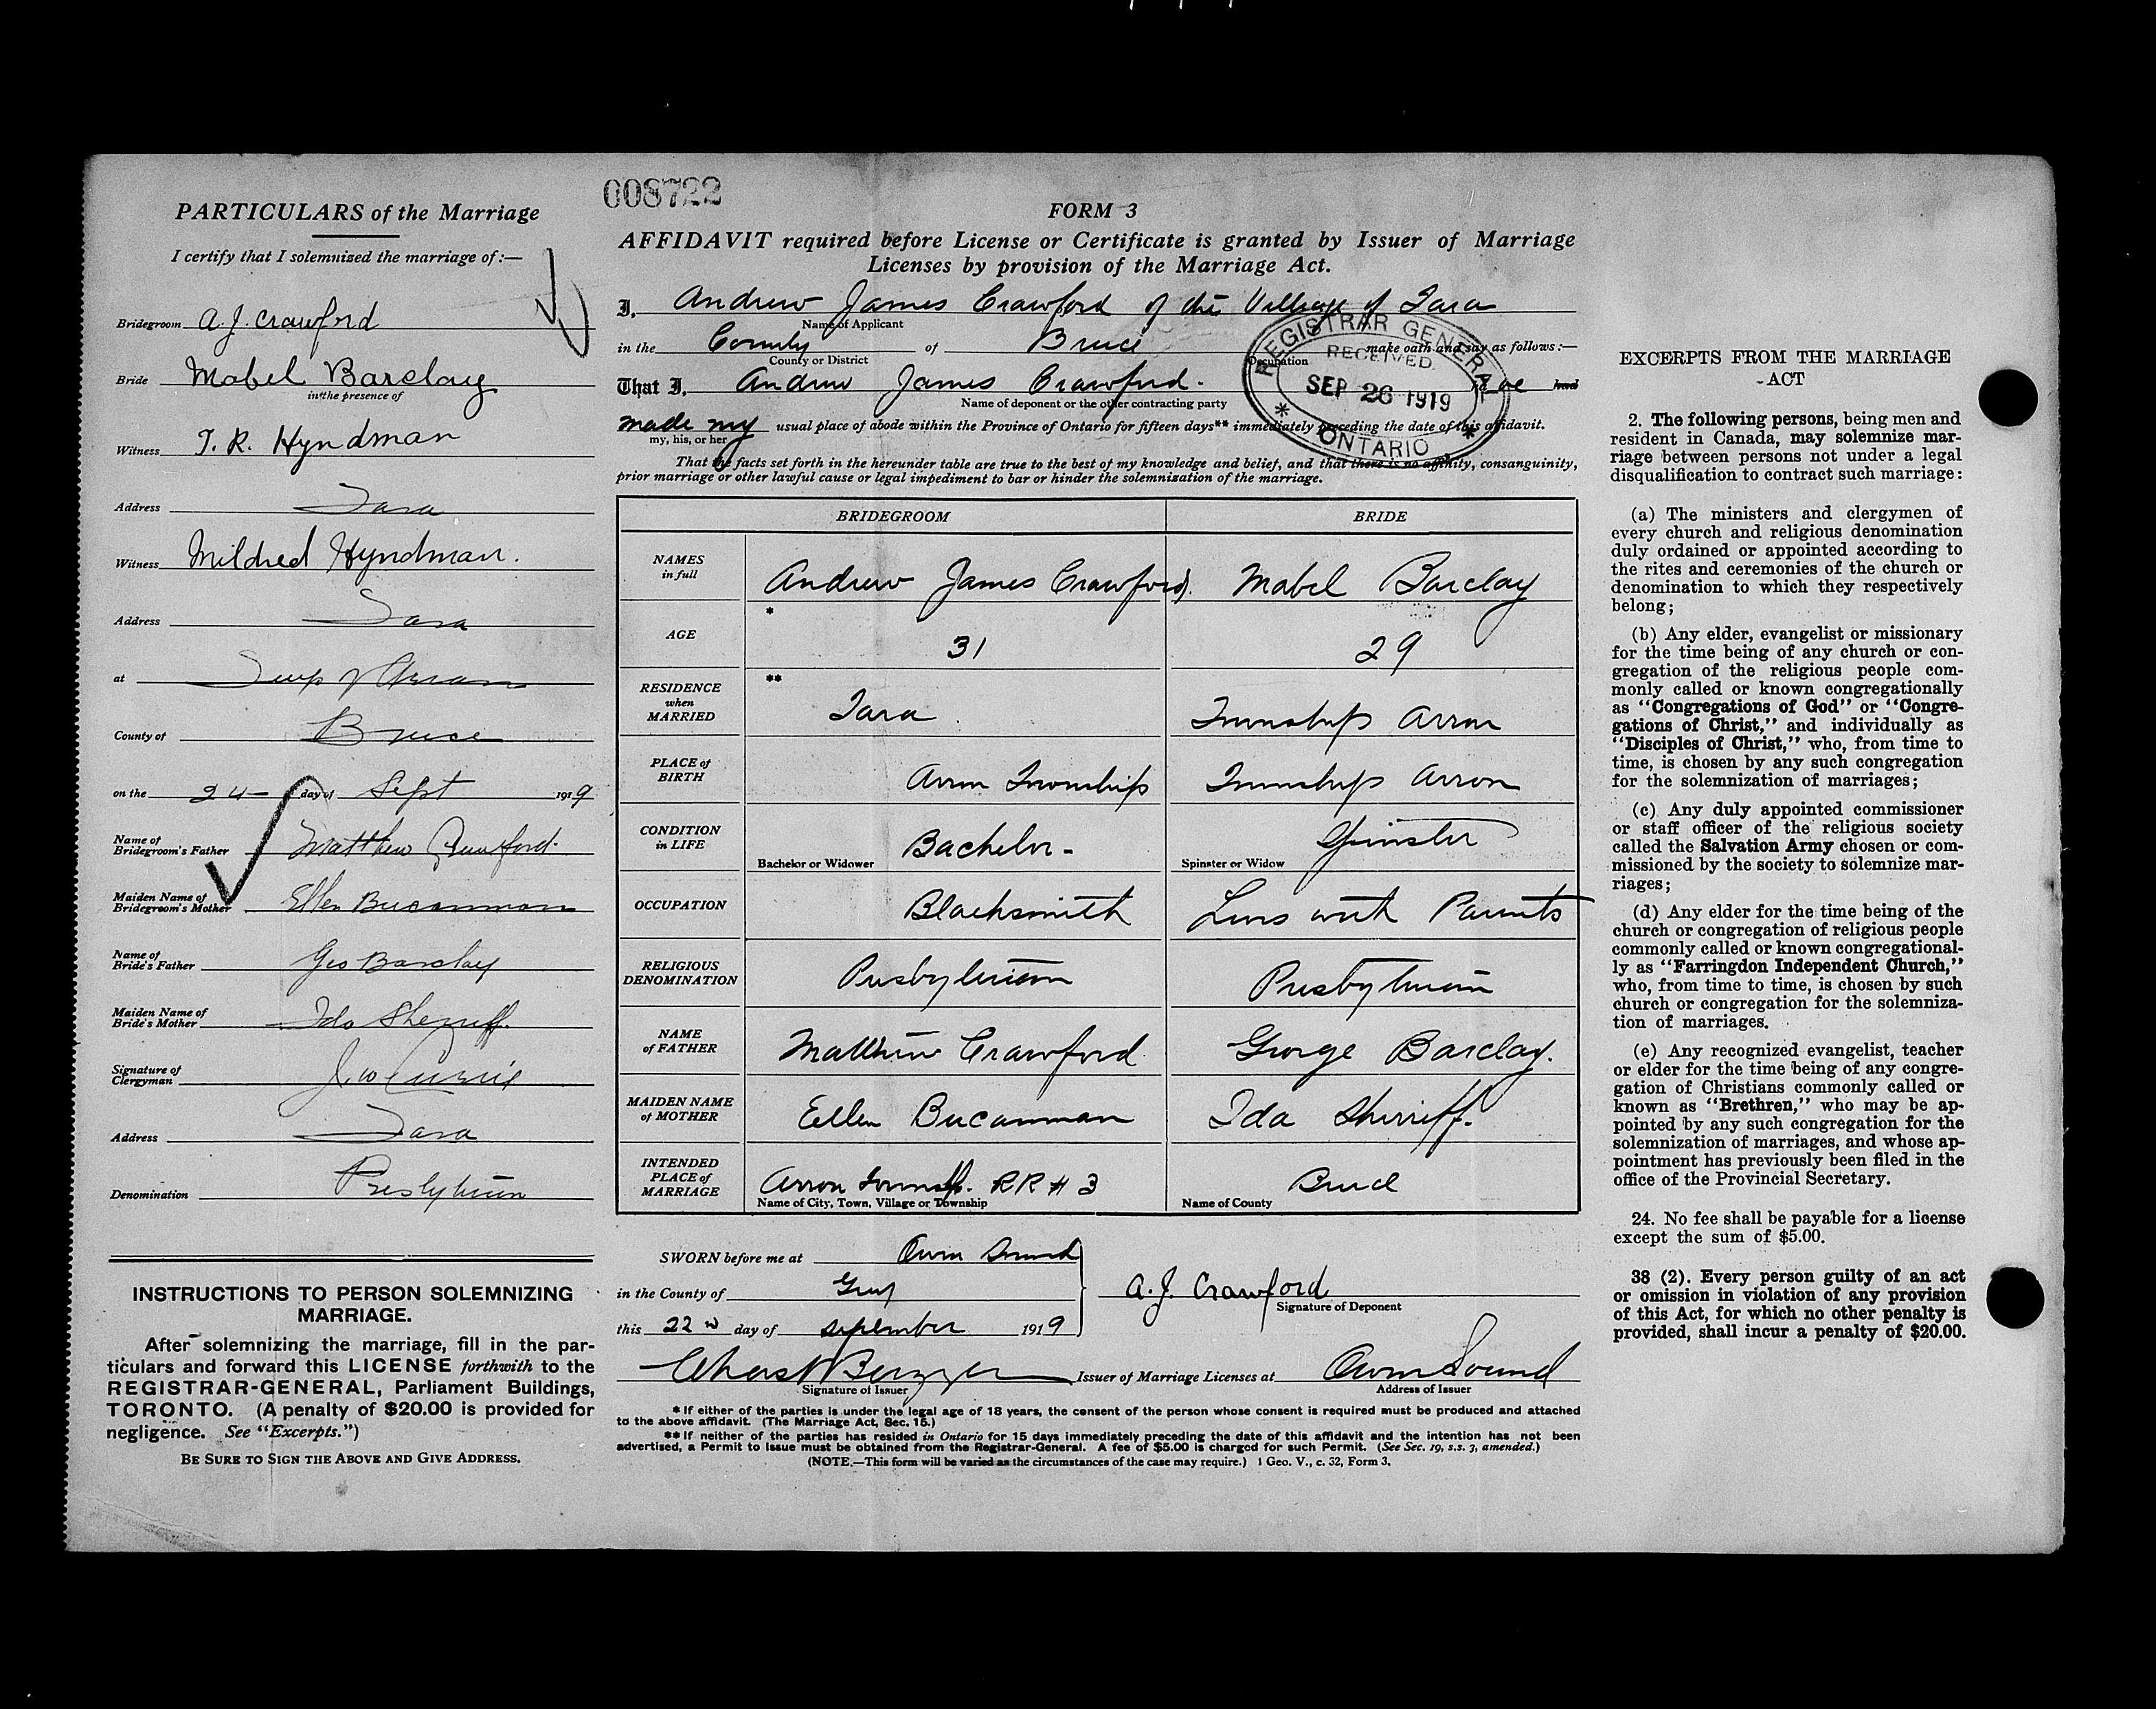 008722
PARTICULARS of the Marriage
I certify that I solemnized the marriage of:—
Bridegroom A. J. Crawford
Bride Mabel Barclay
in the presence of
Witness T. R. Hyndman
Address Tara
Witness Mildred Hyndman.
Address Tara
at Twp of Arran
County of Bruce
on the 24 day of Sept 1919
Name of
Bridegroom's Father Matthew Crawford.
Maiden Name of
Bridegroom's Mother Ellen Bucannan
Name of
Bride's Father Geo Barclay
Maiden Name of
Bride's Mother Ida Sherriff.
Signature of
Clergyman J. W. Currie
Address Tara
Denomination Presbyterian
INSTRUCTIONS TO PERSON SOLEMNIZING
MARRIAGE.
After solemnizing the marriage, fill in the par-
ticulars and forward this LICENSE forthwith to the
REGISTRAR-GENERAL, Parliament Buildings,
TORONTO. (A penalty of $20.00 is provided for
negligence. See "Excerpts.")
BE SURE TO SIGN THE ABOVE AND GIVE ADDRESS.
FORM 3
AFFIDAVIT required before License or Certificate is granted by Issuer of Marriage
Licenses by provision of the Marriage Act.
I, Andrew James Crawford of the Village of Tara
Name of Applicant
in the County of Bruce make oath and say as follows:—
County or District Occupation
That I, Andrew James Crawford. have had
Name of deponent or the other contracting party
made my usual place of abode within the Province of Ontario for fifteen days** immediately preceding the date of this affidavit.
my, his, or her
That the facts set forth in the hereunder table are true to the best of my knowledge and belief, and that there is no affinity, consanguinity,
prior marriage or other lawful cause or legal impediment to bar or hinder the solemnization of the marriage.
REGISTRAR GENERAL
RECEIVED
SEP 26 1919
* ONTARIO *
BRIDEGROOM BRIDE
NAMES
in full Andrew James Crawford. Mabel Barclay
AGE * 31 29
RESIDENCE
when
MARRIED ** Tara. Township Arron
PLACE of
BIRTH Arron Township Township Arron
CONDITION
in LIFE Bachelor or Widower Bachelor - Spinster or Widow Spinster
OCCUPATION Blacksmith Lives with Parents
RELIGIOUS
DENOMINATION Presbyterian Presbyterian
NAME
of FATHER Matthew Crawford George Barclay.
MAIDEN NAME
of MOTHER Eellen Bucannan Ida Sherriff.
INTENDED
PLACE of
MARRIAGE Arron Township. RR # 3 Bruce
Name of City, Town, Village or Township Name of County
SWORN before me at Owen Sound
in the County of Grey
this 22nd day of September 1919
A. J. Crawford
Signature of Deponent
Issuer of Marriage Licenses at Owen Sound
Signature of Issuer Address of Issuer
* If either of the parties is under the legal age of 18 years, the consent of the person whose consent is required must be produced and attached
to the above affidavit. (The Marriage Act, Sec. 15.)
** If neither of the parties has resided in Ontario for 15 days immediately preceding the date of this affidavit and the intention has not been
advertised, a Permit to Issue must be obtained from the Registrar-General. A fee of $5.00 is charged for such Permit. (See Sec. 19, s.s. 3, amended.)
(NOTE.—This form will be varied as the circumstances of the case may require.) 1 Geo. V., c. 32, Form 3.
EXCERPTS FROM THE MARRIAGE
-ACT
2. The following persons, being men and
resident in Canada, may solemnize mar-
riage between persons not under a legal
disqualification to contract such marriage:
(a) The ministers and clergymen of
every church and religious denomination
duly ordained or appointed according to
the rites and ceremonies of the church or
denomination to which they respectively
belong;
(b) Any elder, evangelist or missionary
for the time being of any church or con-
gregation of the religious people com-
monly called or known congregationally
as "Congregations of God" or "Congre-
gations of Christ," and individually as
"Disciples of Christ," who, from time to
time, is chosen by any such congregation
for the solemnization of marriages;
(c) Any duly appointed commissioner
or staff officer of the religious society
called the Salvation Army chosen or com-
missioned by the society to solemnize mar-
riages;
(d) Any elder for the time being of the
church or congregation of religious people
commonly called or known congregational-
ly as "Farringdon Independent Church,"
who, from time to time, is chosen by such
church or congregation for the solemniza-
tion of marriages.
(e) Any recognized evangelist, teacher
or elder for the time being of any congre-
gation of Christians commonly called or
known as "Brethren," who may be ap-
pointed by any such congregation for the
solemnization of marriages, and whose ap-
pointment has previously been filed in the
office of the Provincial Secretary.
24. No fee shall be payable for a license
except the sum of $5.00.
38 (2). Every person guilty of an act
or omission in violation of any provision
of this Act, for which no other penalty is
provided, shall incur a penalty of $20.00.